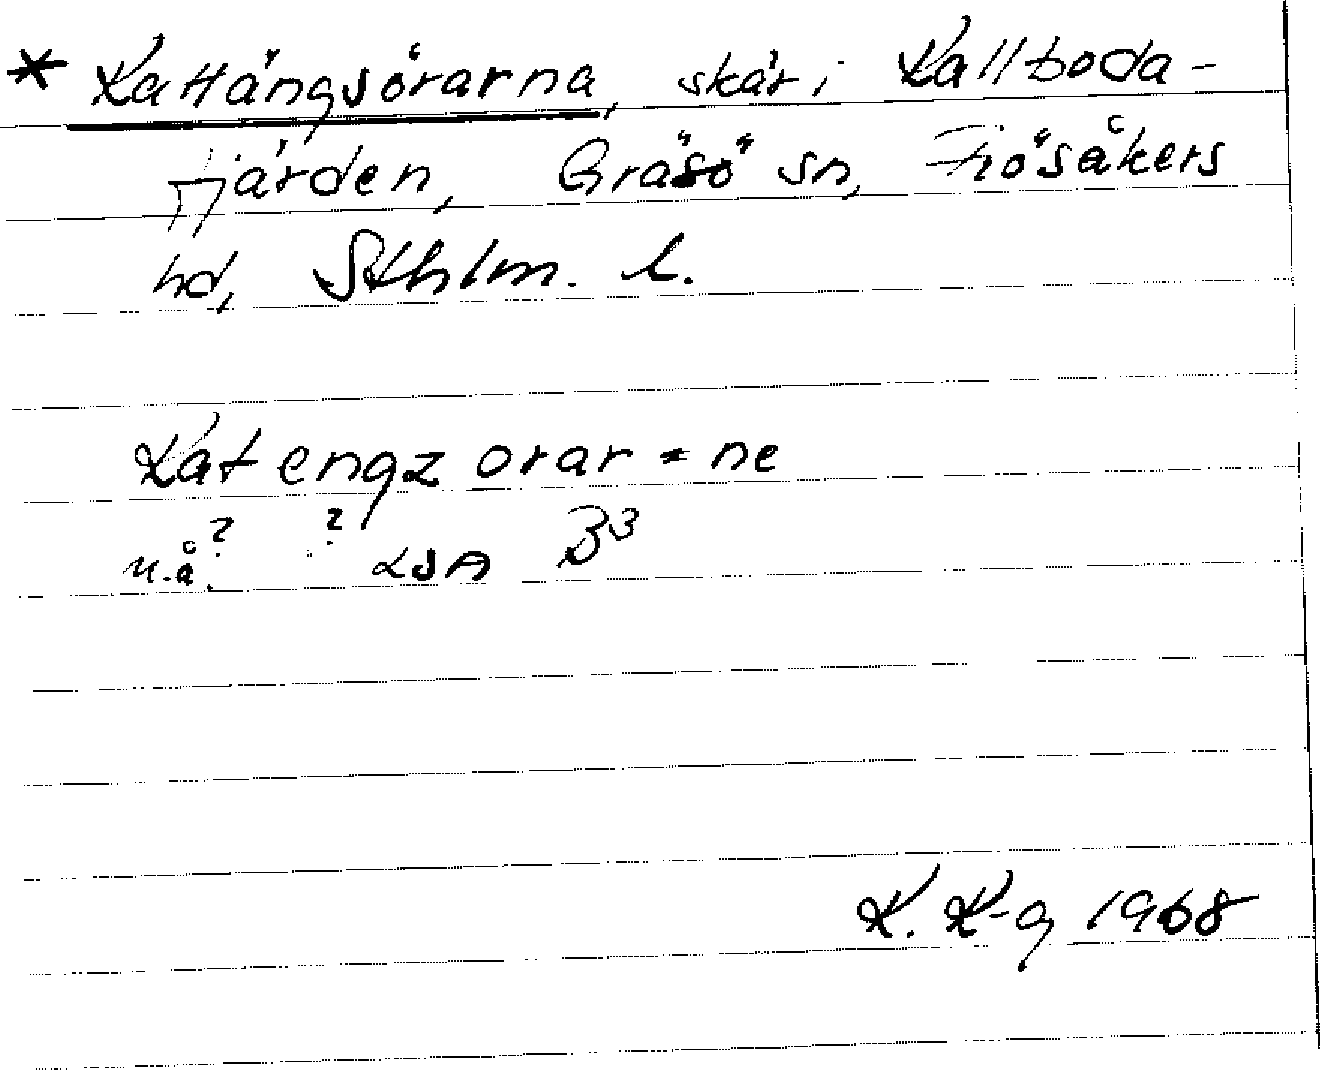 * Kattängsörarna, skär i Kallboda-
fjärden, Gräsö sn, Frösåkers
hd, Sthlm. l.
Kat engz orar = ne
u.å. ? ? LSA B3
K. K-g 1968